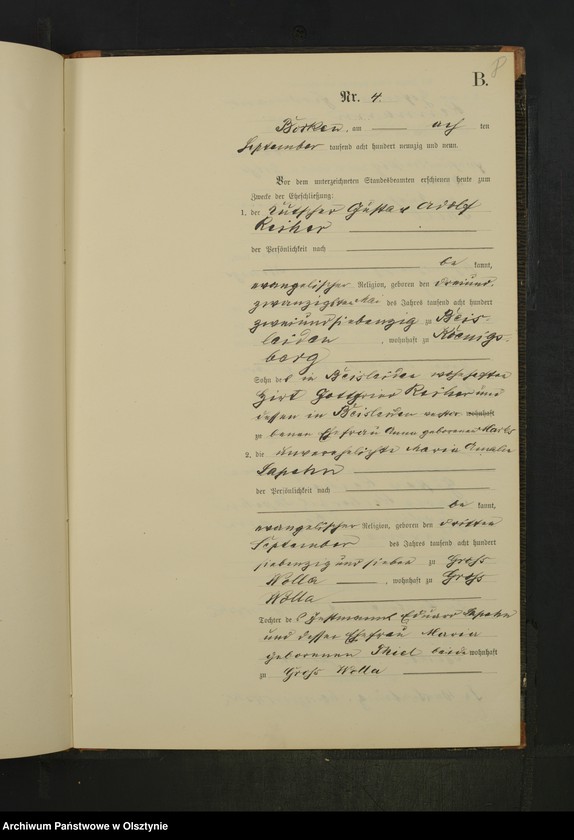 8
B.
Nr. 4.
Borken, am acht ten
September tausend acht hundert neunzig und neun.
Vor dem unterzeichneten Standesbeamten erschienen heute zum
Zwecke der Eheschließung:
1. der Kutscher Gustav Adolf
Reiher
der Persönlichkeit nach
be kannt,
evangelischer Religion, geboren den dreiund-
zwanzigsten Mai des Jahres tausend acht hundert
zweiundsiebenzig zu Beis-
leiden, wohnhaft zu Koenigs-
berg
Sohn des in Beisleiden
Hirt Gottfried Reiher und
dessen in Beisleiden wohnhaft
zu benen Ehefrau Anna geborenen
2. die unverehelichte Maria Amalie
Lapehn
der Persönlichkeit nach
be kannt,
evangelischer Religion, geboren den dritten
September des Jahres tausend acht hundert
siebenzig und sieben zu Groß
Wolla, wohnhaft zu Groß
Wolla
Tochter des Instmanns Eduard Lapehn
und dessen Ehefrau Maria
geborenen Thiel beide wohnhaft
zu Groß Wolla
Archiwum Państwowe w Olsztynie